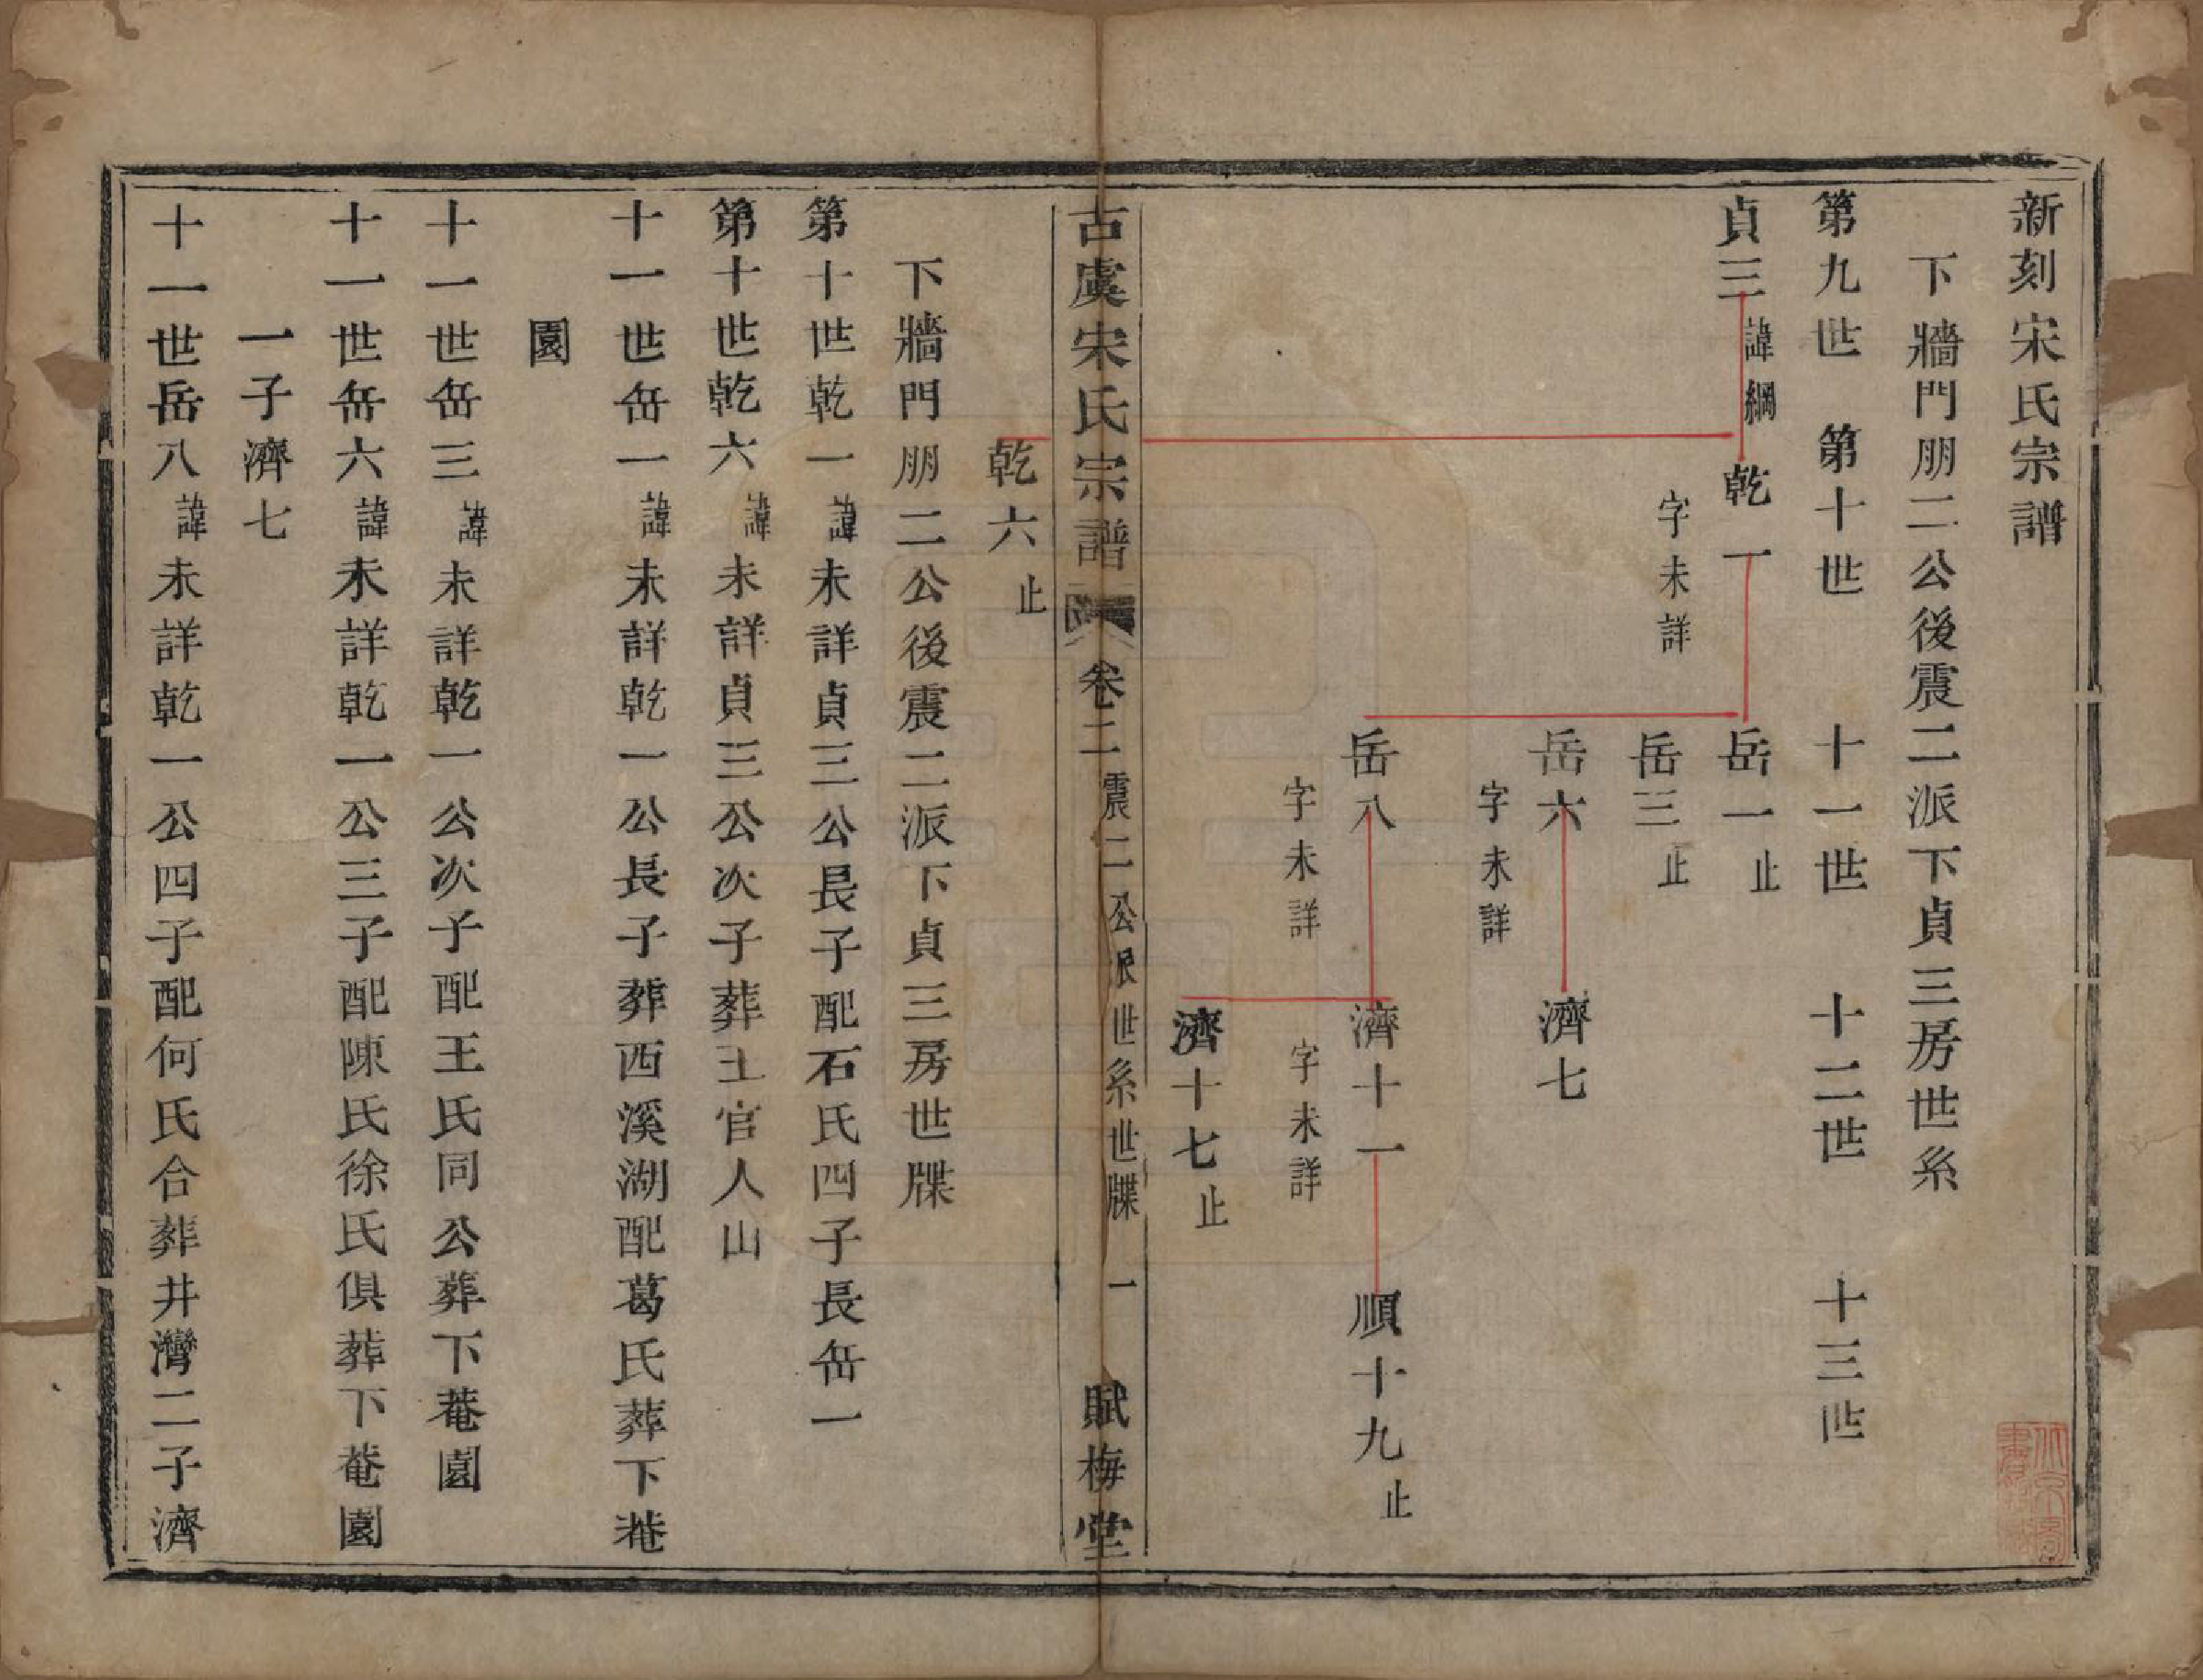 新刻宋氏宗譜
下牆門朋二公後震二派下貞三房世系
第九世　第十世　十一世　十二世　十三世
貞三 諱綱　乾一　岳一 止
字未詳　岳三 止
岳六　濟七
字未詳
岳八　濟十一　順十九 止
字未詳　字未詳
濟十七 止
古虞宋氏宗譜　卷二　震二公派世系世牒　一　賦梅堂
乾六 止
下牆門朋二公後震二派下貞三房世牒
第十世乾一諱未詳貞三公長子配石氏四子長岳一
第十世乾六諱未詳貞三公次子葬王官人山
十一世岳一諱未詳乾一公長子葬西溪湖配葛氏葬下菴
園
十一世岳三諱未詳乾一公次子配王氏同公葬下菴園
十一世岳六諱未詳乾一公三子配陳氏徐氏俱葬下菴園
一子濟七
十一世岳八諱未詳乾一公四子配何氏合葬井灣二子濟